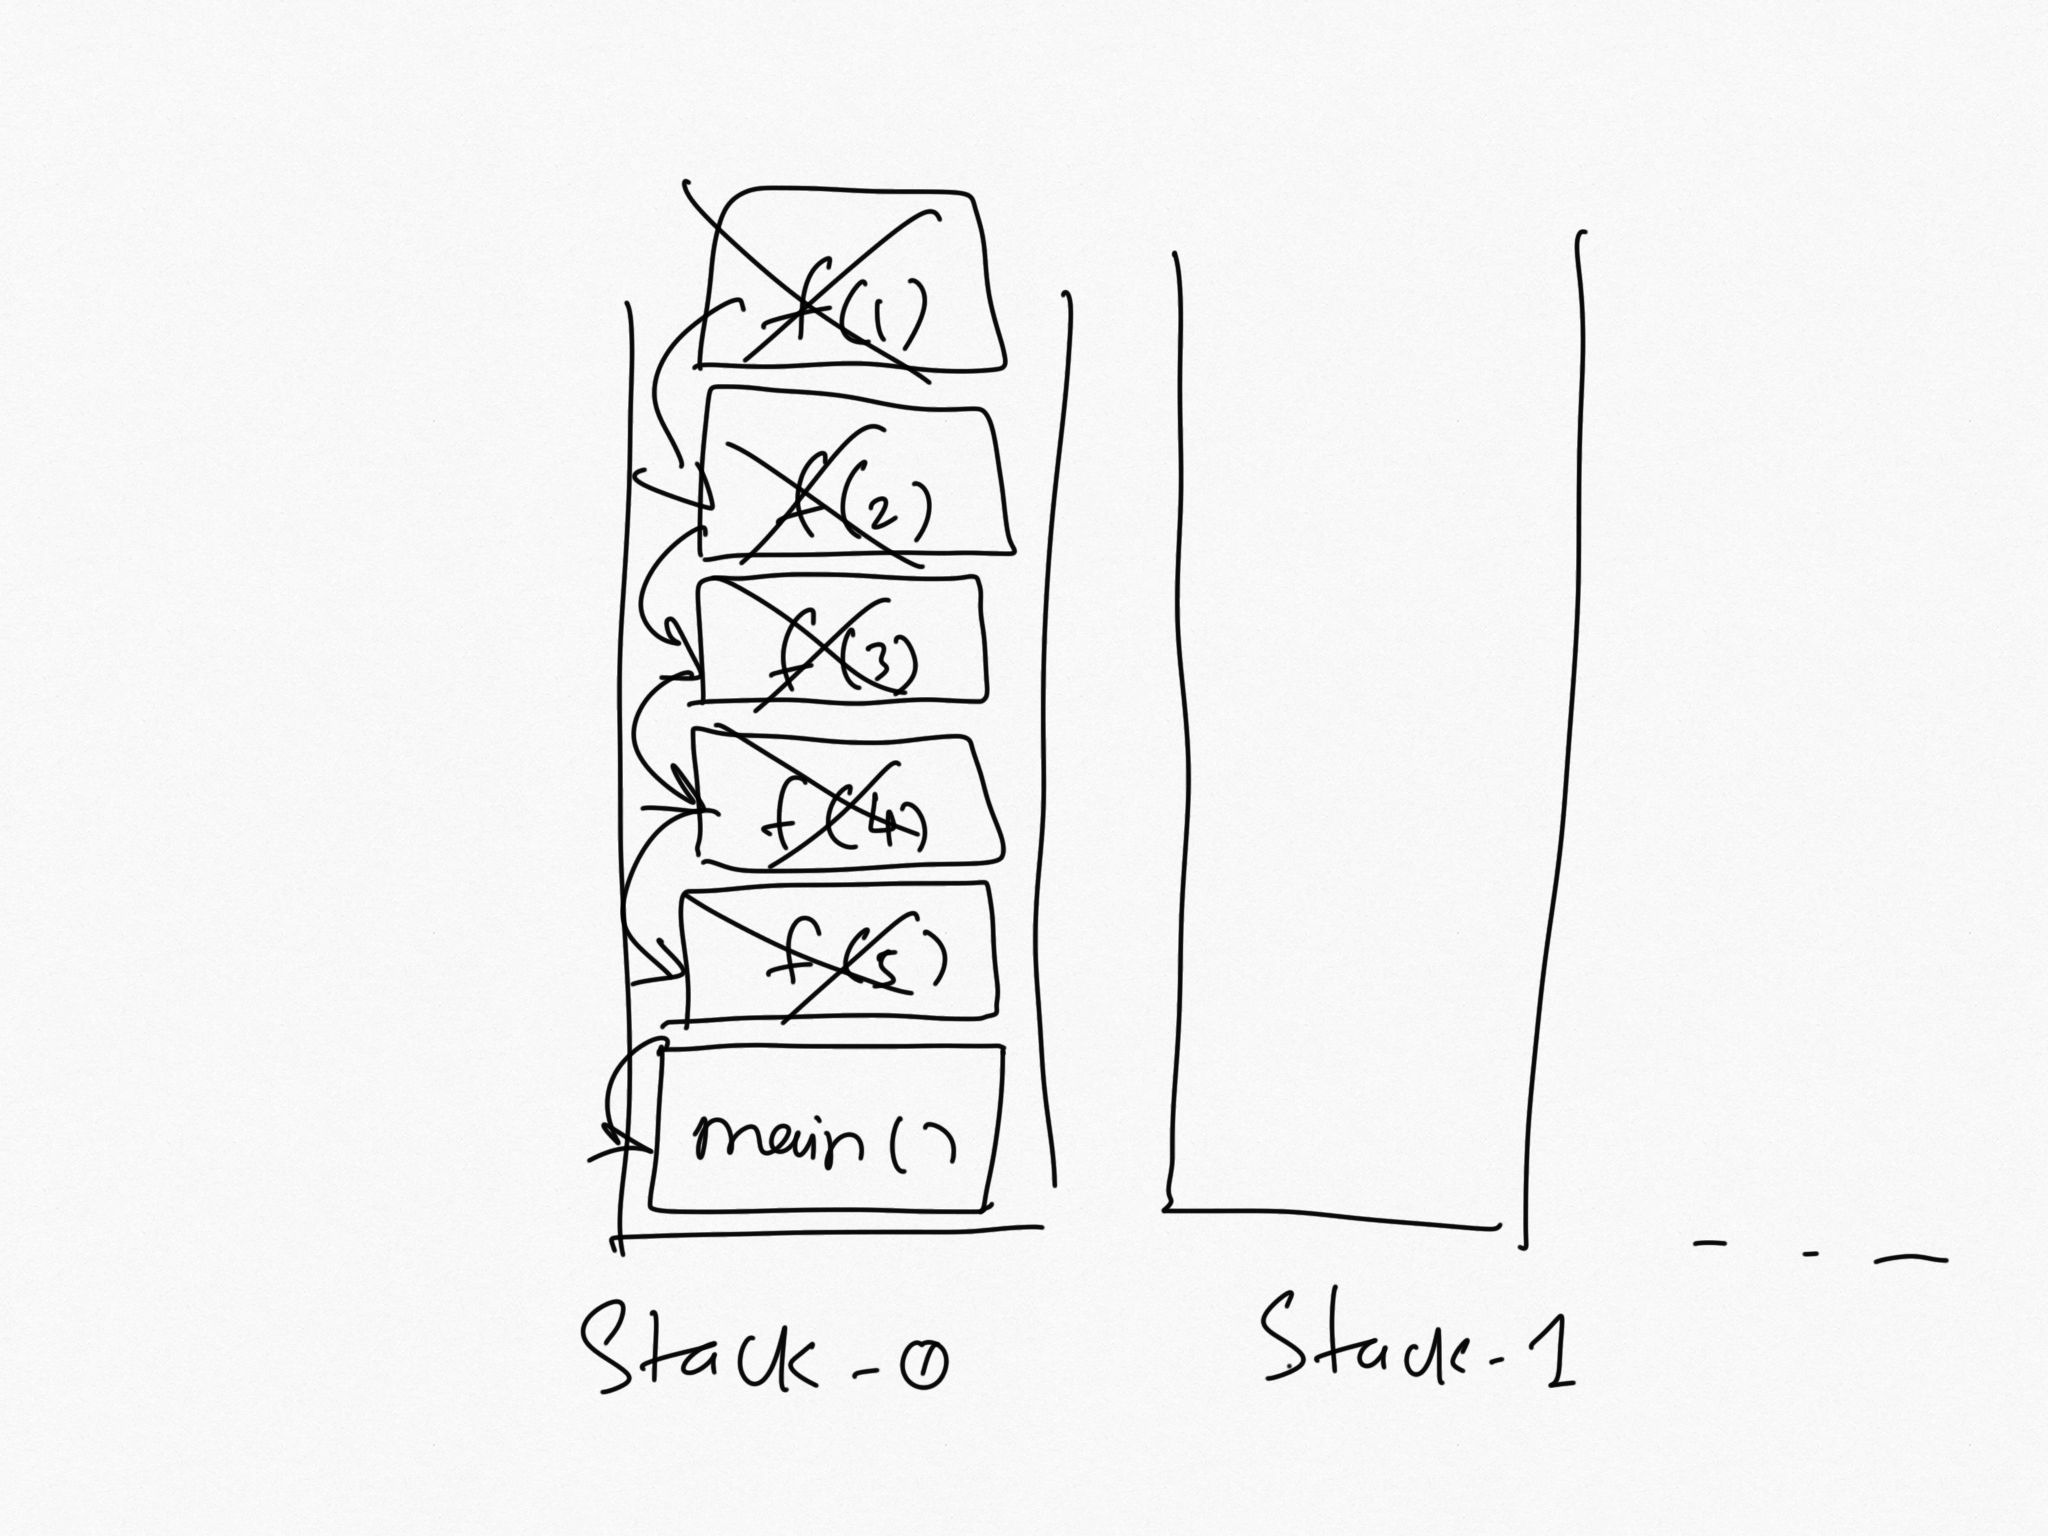 f(1)
f(2)
f(3)
f(4)
f(5)
main()
Stack-0
Stack-1